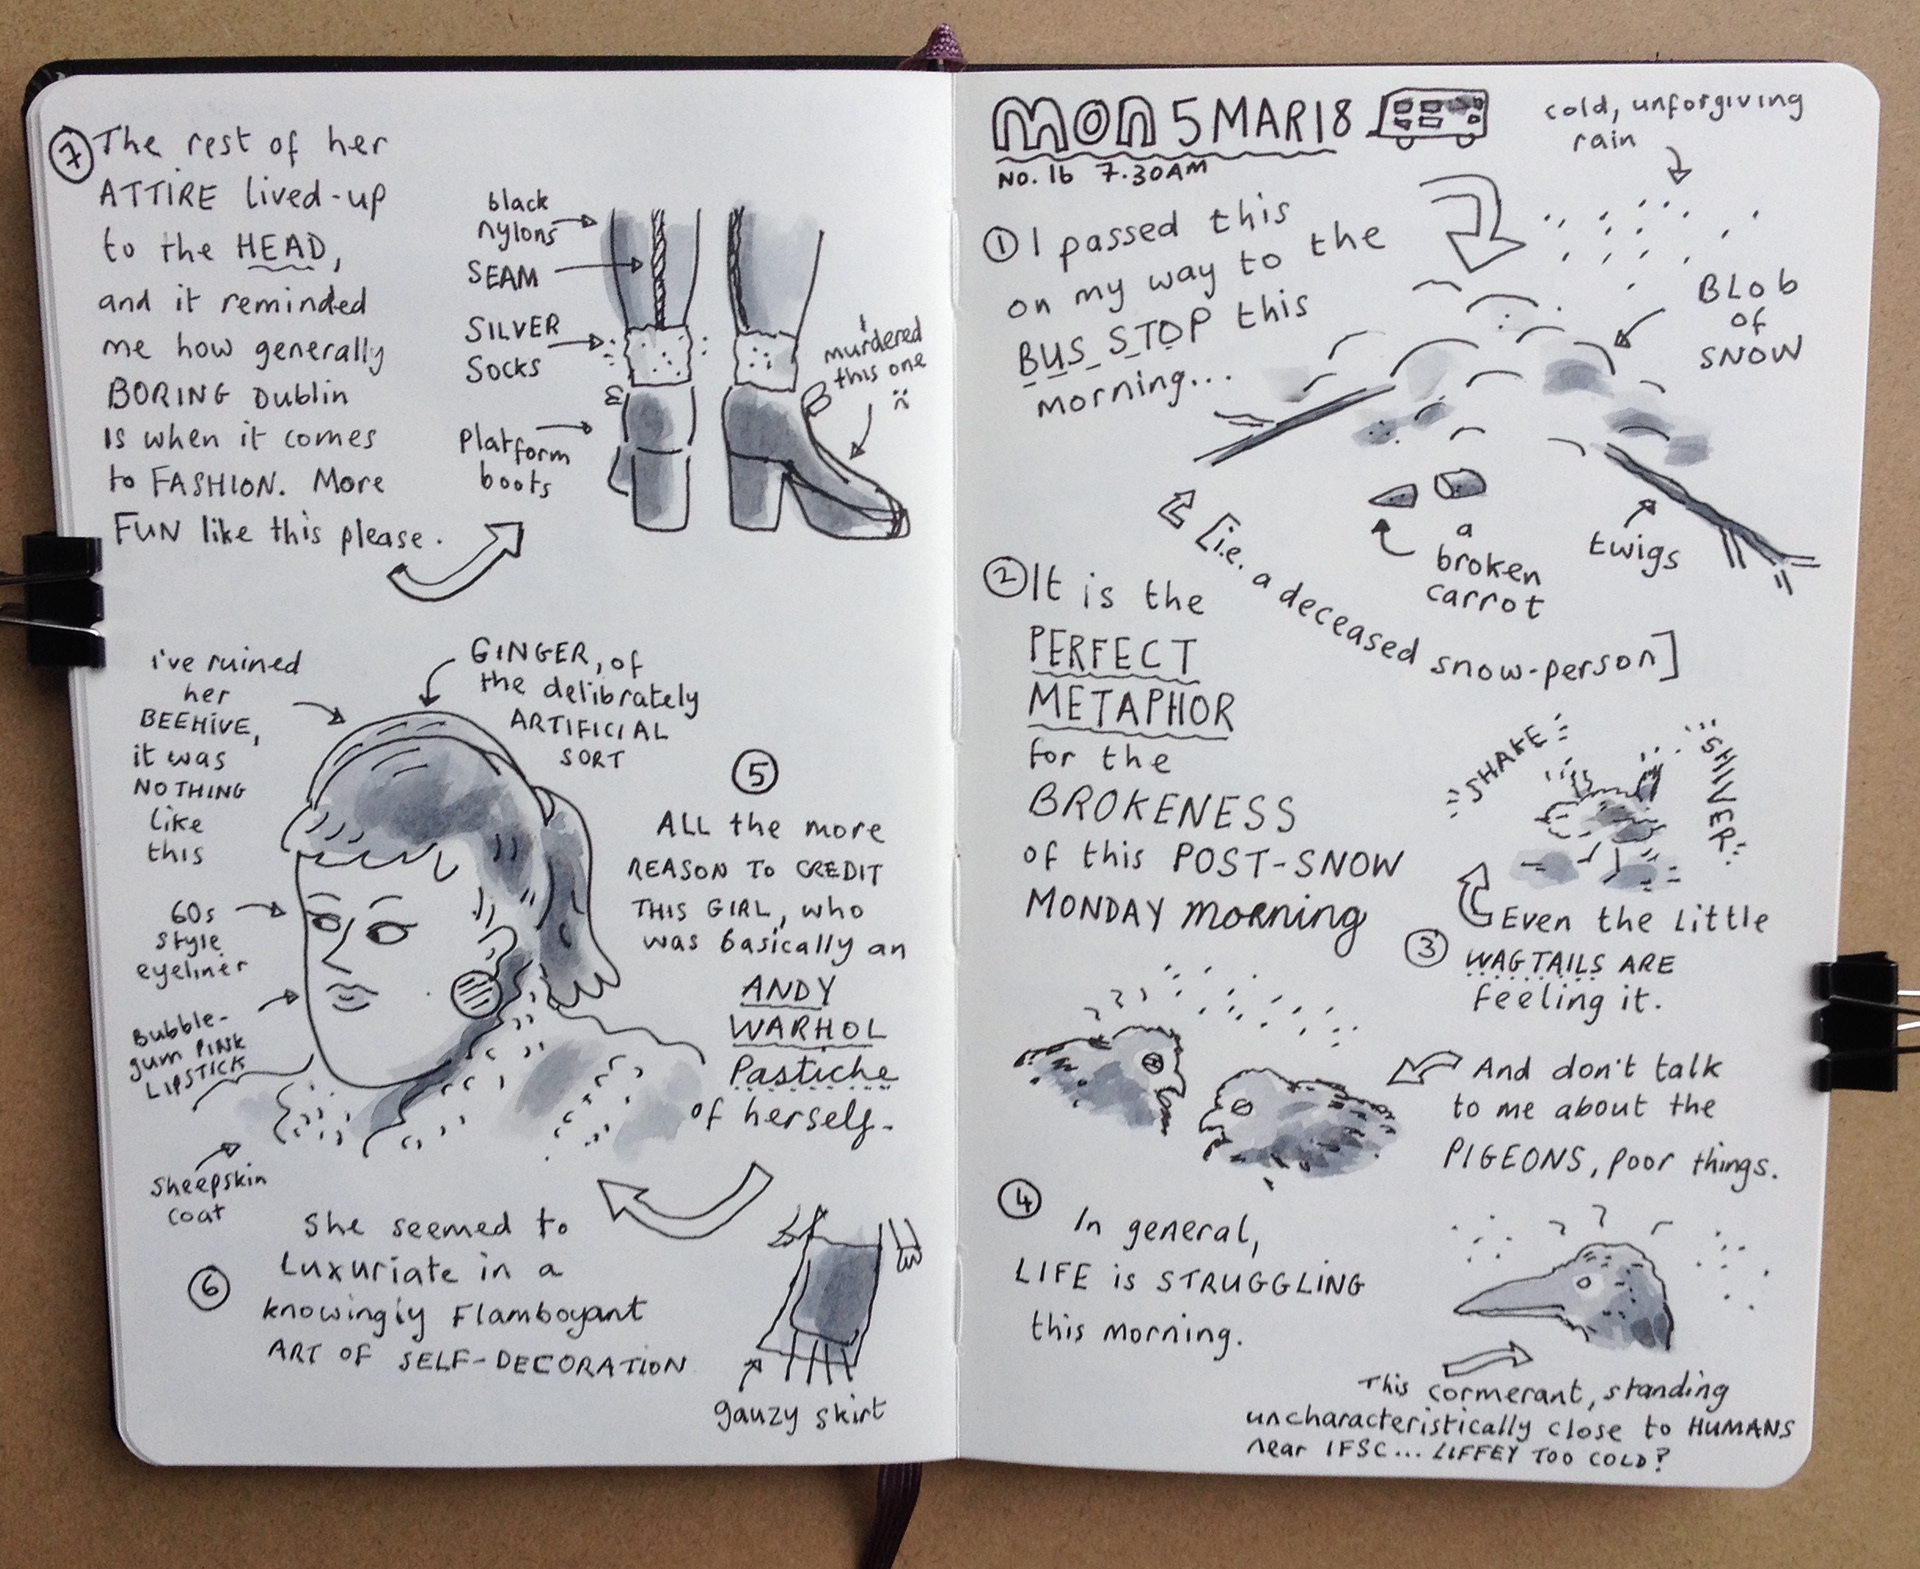 7 The rest of her
ATTIRE lived-up
to the HEAD,
and it reminded
me how generally
BORING Dublin
is when it comes
to FASHION. More
FUN like this please.
black
nylons
SEAM
SILVER
SOCKS
Platform
boots
I murdered
this one
i've ruined
her
BEEHIVE,
it was
NOTHING
like
this
GINGER, of
the delibrately
ARTIFICIAL
SORT
60s
style
eyeliner
Bubble-
gum PINK
LIPSTICK
Sheepskin
coat
5
ALL the more
REASON TO CREDIT
THIS GIRL, who
was basically an
ANDY
WARHOL
Pastiche
of herself.
6
She seemed to
Luxuriate in a
knowingly Flamboyant
ART OF SELF-DECORATION
gauzy skirt
MON 5 MAR 18
NO. 16 7.30AM
cold, unforgiving
rain
1 I passed this
on my way to the
BUS STOP this
morning...
BLOB
OF
SNOW
twigs
a
broken
carrot
[i.e. a deceased snow-person]
2 It is the
PERFECT
METAPHOR
for the
BROKENESS
of this POST-SNOW
MONDAY morning
SHAKE
SHIVER
3
Even the Little
WAGTAILS ARE
feeling it.
And don't talk
to me about the
PIGEONS, poor things.
4
In general,
LIFE is STRUGGLING
this morning.
This cormerant, standing
uncharacteristically close to HUMANS
near IFSC... LIFFEY TOO COLD?